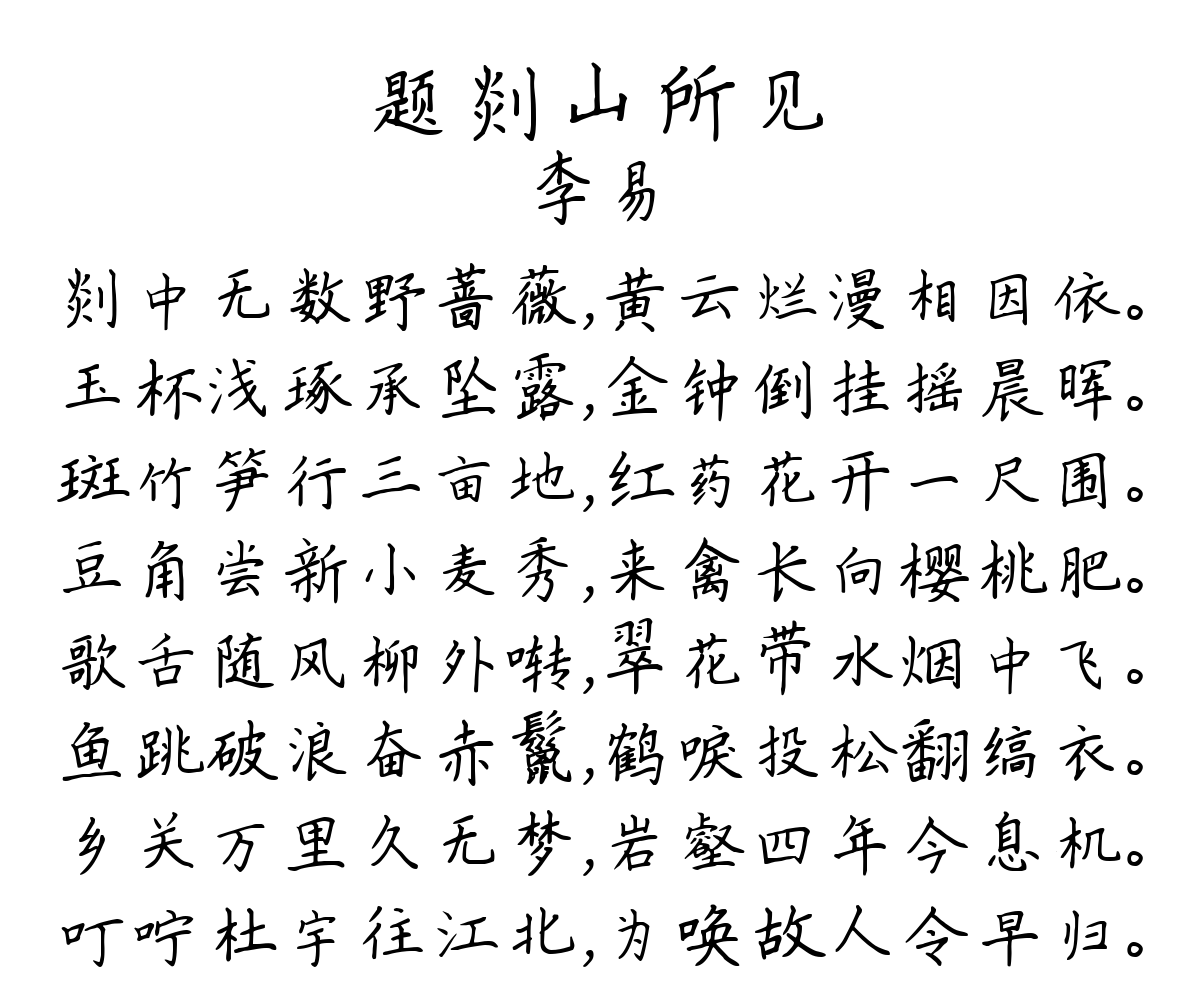 题剡山所见
李易
剡中无数野蔷薇,黄云烂漫相因依。
玉杯浅琢承坠露,金钟倒挂摇晨晖。
斑竹笋行三亩地,红药花开一尺围。
豆角尝新小麦秀,来禽长向樱桃肥。
歌舌随风柳外啭,翠花带水烟中飞。
鱼跳破浪奋赤鬣,鹤唳投松翻缟衣。
乡关万里久无梦,岩壑四年今息机。
叮咛杜宇往江北,为唤故人令早归。